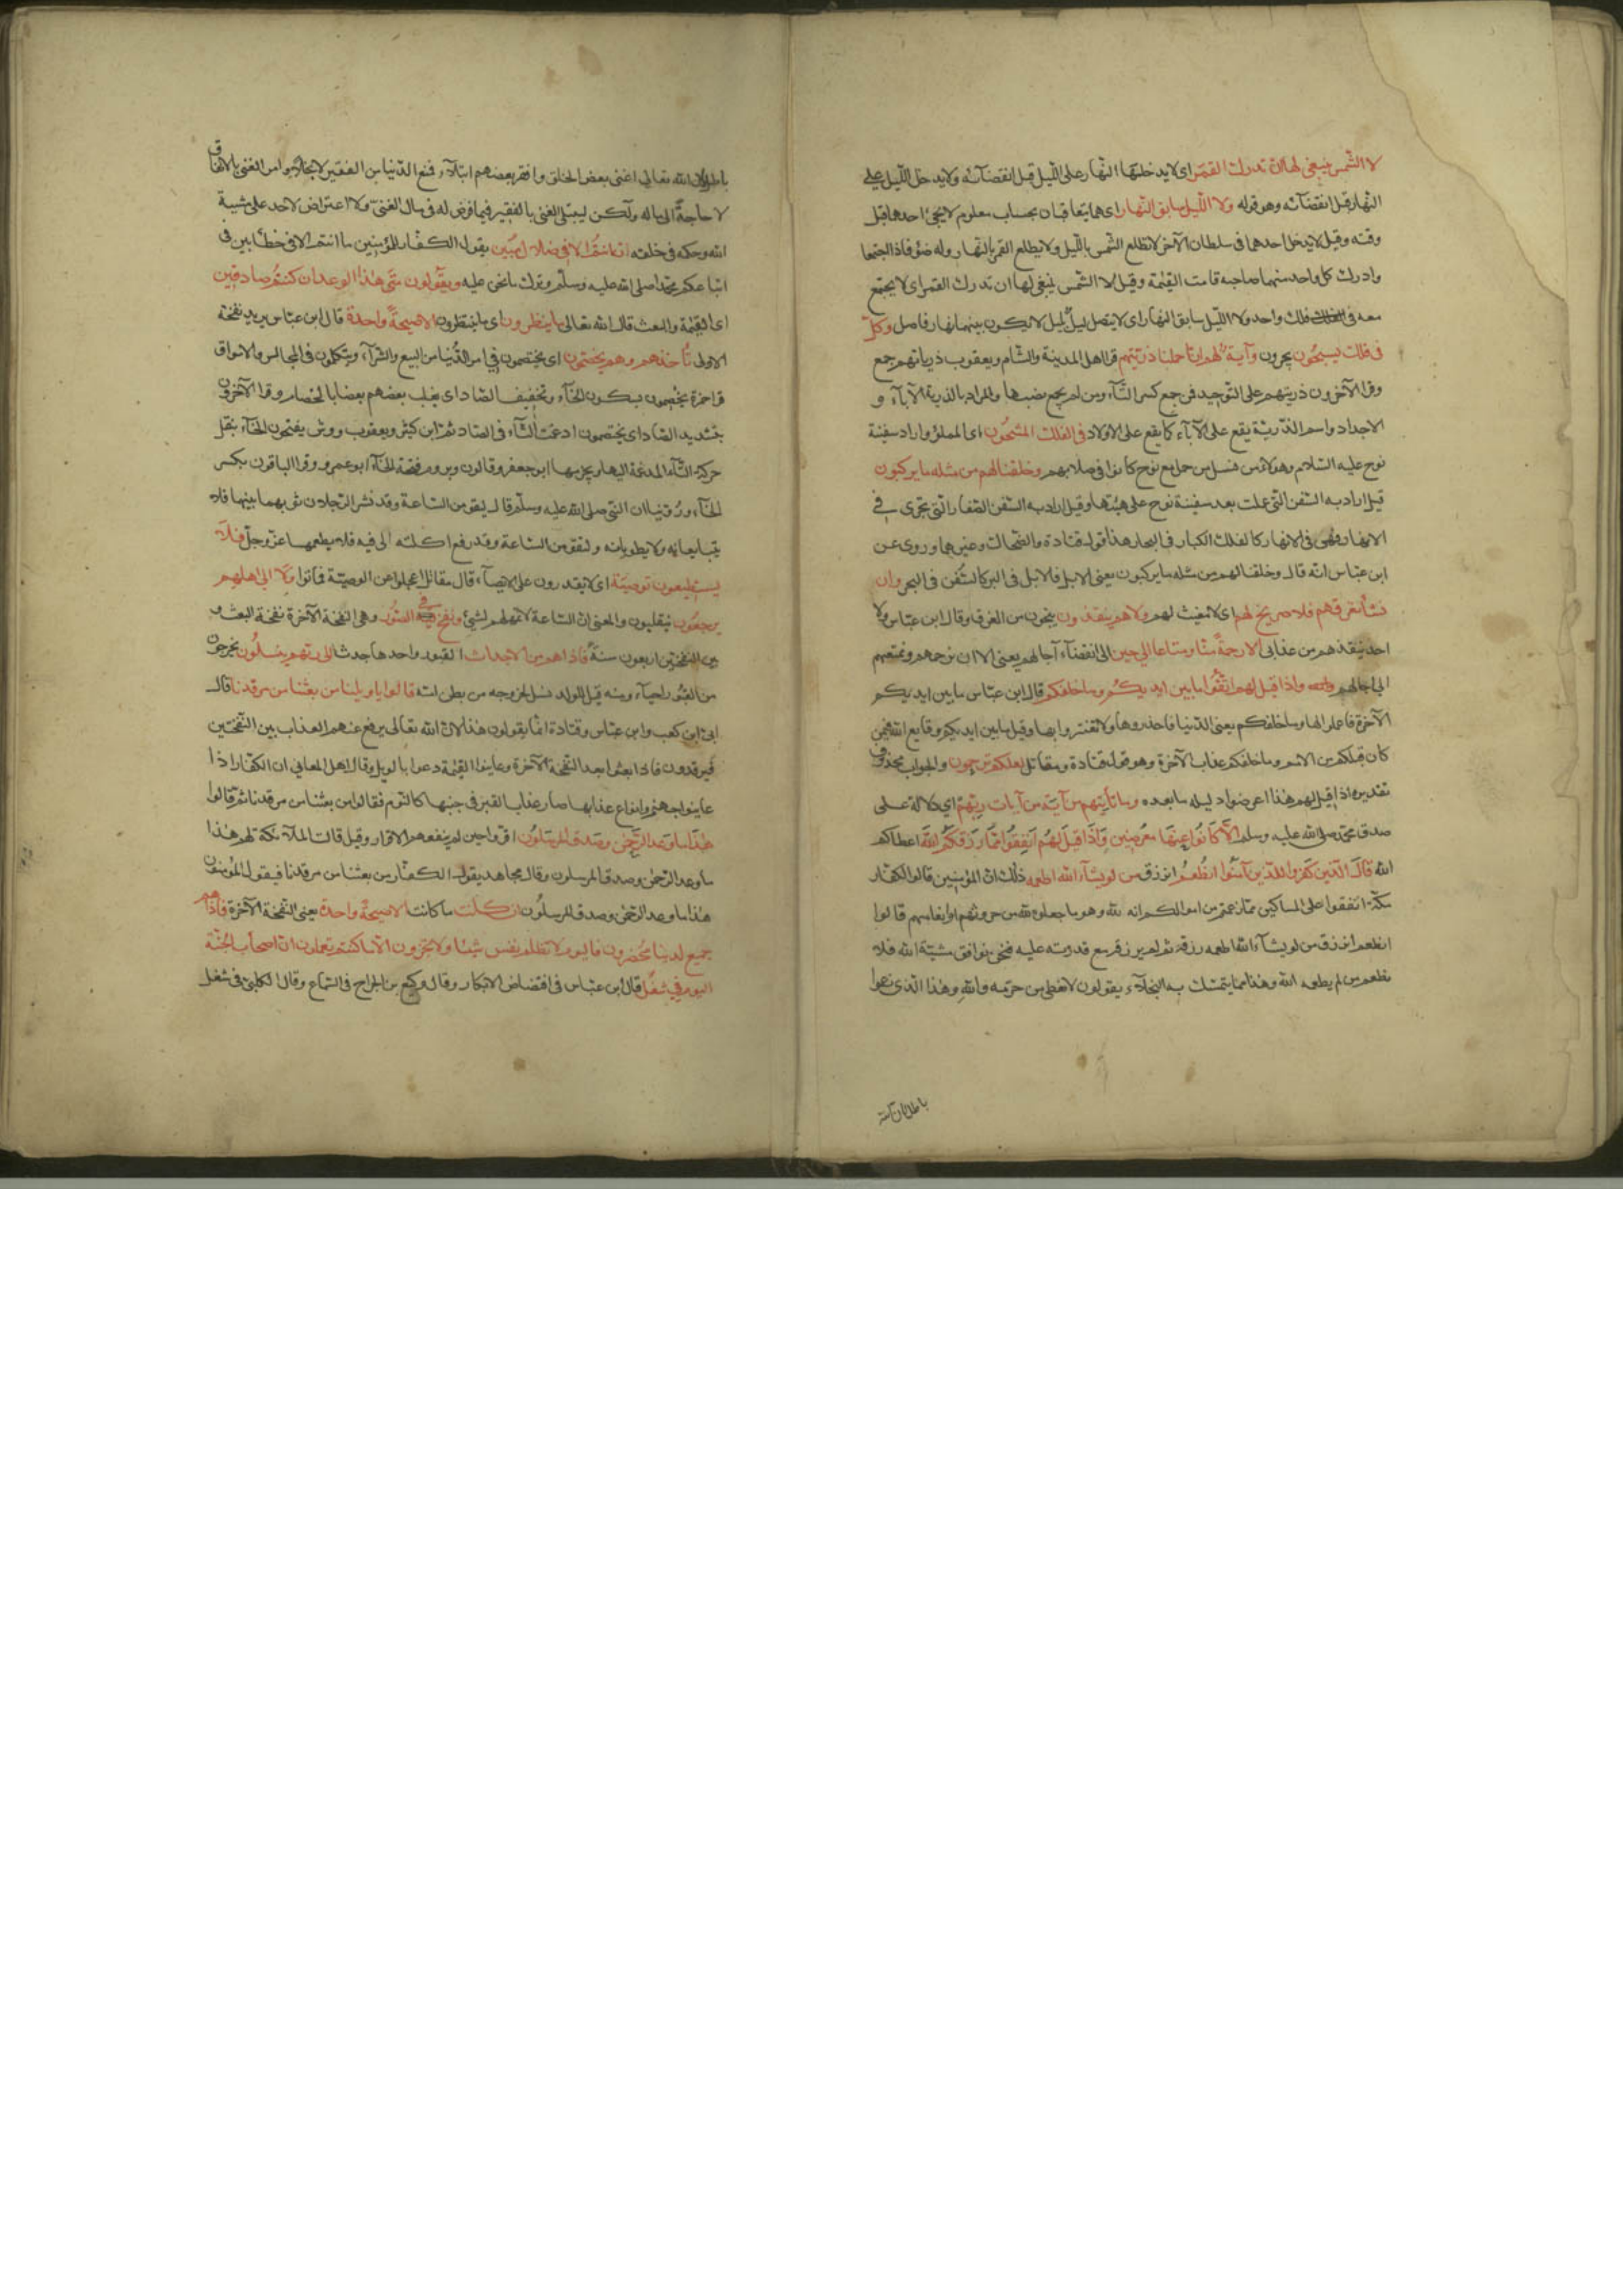 لا الشمس ينبغى لها ان تدرك القمر اى لا يدخل النهار على الليل قبل انقضآئه ولا يدخل الليل على
النهار قبل انقضآئه وهو قوله ولا الليل سابق النهار اى هما يتعاقبان بحساب معلوم لا يجئ احدهما قبل
وقته وقيل لا يدخل احدهما فى سلطان الآخر لا تطلع الشمس بالليل ولا يطلع القمر بالنهار وله ضوء فاذا اجتمعا
وادرك كل واحد منهما صاحبه قامت القيمة وقيل لا الشمس ينبغى لها ان تدرك القمر اى لا يجتمع
معه فى فلك واحد ولا الليل سابق النهار اى لا يتصل ليل بليل لا يكون بينهما نهار فاصل وكل
فى فلك يسبحون يجرون وآية لهم انا حملنا ذريتهم قرا اهل المدينة والشام ويعقوب ذرياتهم جمع
وقرا الآخرون ذريتهم على التوحيد فمن جمع كسر التآء ومن لم يجمع نصبها والمراد بالذرية الآبآء و
الاجداد واسم الذرية يقع على الآبآء كما يقع على الاولاد فى الفلك المشحون اى المملؤ واراد سفينة
نوح عليه السلام وهؤلاء من نسل من حمل مع نوح كانوا فى صلابهم وخلقنا لهم من مثله ما يركبون
قيل اراد به السفن التى عملت بعد سفينة نوح على هيئتها وقيل اراد به السفن الصغار التى تجرى فى
الانهار فهى فى الانهار كالفلك الكبار فى البحار هذا قول قتادة والضحاك وغيرهما وروى عن
ابن عباس انه قال وخلقنا لهم من مثله ما يركبون يعنى الابل فالابل فى البر كالسفن فى البحر وان
نشأ نغرقهم فلا صريخ لهم اى لا مغيث لهم ولا هم ينقذون ينجون من الغرق وقال ابن عباس ولا
احد ينقذهم من عذابى الا رحمة منا ومتاعا الى حين الى انقضآء آجالهم يعنى الا ان نرحمهم ونمتعهم
الى اجالهم واذا قيل لهم اتقوا ما بين ايديكم وما خلفكم قال ابن عباس ما بين ايديكم
الآخرة فاعملوا لها وما خلفكم يعنى الدنيا فاحذروها ولا تغتروا بها وقيل ما بين ايديكم وقايع الله فيمن
كان قبلكم من الامم وما خلفكم عذاب الآخرة وهو قول قتادة ومقاتل لعلكم ترحمون والجواب محذوف
تقديره اذا قيل لهم هذا اعرضوا دليله ما بعده وما تأتيهم من آية من آيات ربهم اى دلالة على
صدق محمد صلى الله عليه وسلم الا كانوا عنها معرضين واذا قيل لهم انفقوا مما رزقكم الله اعطاكم
الله قال الذين كفروا للذين آمنوا انطعم انرزق من لو يشآء الله اطعمه ذلك ان المؤمنين قالوا لكفار
مكة انفقوا على المساكين مما زعمتم من اموالكم انه لله وهو ما جعلوه لله من حروثهم وانعامهم قالوا
انطعم انرزق من لو يشآء الله اطعمه رزقه ثم لم يرزقه مع قدرته عليه فنحن نوافق مشية الله فلا
نطعم من لم يطعمه الله وهذا مما يتمسك به البخلآء يقولون لا نعطى من حرمه والله وهذا الذى زعموا
باطل لان الله
باطل لان الله تعالى اغنى بعض الخلق وافقر بعضهم ابتلآء فمنع الدنيا من الفقير لا بخلا وامر الغنى بالانفاق
لا حاجة الى ماله ولكن ليبتلى الغنى بالفقير فيما فرض له فى مال الغنى ولا اعتراض لاحد على مشية
الله وحكمه فى خلقه ان انتم الا فى ضلال مبين يقول الكفار للمؤمنين ما انتم الا فى خطأ بين فى
اتباعكم محمدا صلى الله عليه وسلم وترك ما نحن عليه ويقولون متى هذا الوعد ان كنتم صادقين
اى القيمة والبعث قال الله تعالى ما ينظرون اى ما ينتظرون الا صيحة واحدة قال ابن عباس يريد نفخة
الاولى تأخذهم وهم يخصمون اى يختصمون فى امر الدنيا من البيع والشرآء ويتكلمون فى المجالس والاسواق
قرا حمزة يخصمون بسكون الخآء وتخفيف الصاد اى يغلب بعضهم بعضا بالخصام وقرا الآخرون
بتشديد الصاد اى يختصمون ادغمت التآء فى الصاد ثم ابن كثير ويعقوب وورش يفتحون الخآء بنقل
حركة التآء المدغمة اليها ويجزمها ابو جعفر وقالون ويروم فتحة الخآء ابو عمرو وقرا الباقون بكسر
الخآء وروينا ان النبى صلى الله عليه وسلم قال ليقومن الساعة وقد نشر الرجلان ثوبهما بينهما فلا
يتبايعانه ولا يطويانه ولتقومن الساعة وقد رفع اكلته الى فيه فلا يطعمها عز وجل فلا
يستطيعون توصية اى لا يقدرون على الايصآء قال مقاتل اعجلوا عن الوصية فماتوا ولا الى اهلهم
يرجعون ينقلبون والمعنى ان الساعة لا تمهلهم لشئ ونفخ فى الصور وهى النفخة الآخرة نفخة البعث و
بين النفختين اربعون سنة فاذا هم من الاجداث القبور واحدها جدث الى ربهم ينسلون يخرجون
من القبور احيآء ومنه قيل للولد نسل لخروجه من بطن امه قالوا يا ويلنا من بعثنا من مرقدنا قال
ابى ابن كعب وابن عباس وقتادة انما يقولون هذا لان الله تعالى يرفع عنهم العذاب بين النفختين
فيرقدون فاذا بعثوا بعد النفخة الآخرة وعاينوا القيمة دعوا بالويل وقال اهل المعانى ان الكفار اذا
عاينوا جهنم وانواع عذابها صار عذاب القبر فى جنبها كالنوم فقالوا من بعثنا من مرقدنا ثم قالوا
هذا ما وعد الرحمن وصدق المرسلون اقروا حين لم ينفعهم الاقرار وقيل قالت الملآئكة لهم هذا
ما وعد الرحمن وصدق المرسلون وقال مجاهد يقول الكفار من بعثنا من مرقدنا فيقول المؤمنون
هذا ما وعد الرحمن وصدق المرسلون ان كانت ما كانت الا صيحة واحدة يعنى النفخة الآخرة فاذا هم
جميع لدينا محضرون فاليوم لا تظلم نفس شيئا ولا تجزون الا ما كنتم تعملون ان اصحاب الجنة
اليوم فى شغل قال ابن عباس فى افتضاض الابكار وقال وكيع بن الجراح فى السماع وقال الكلبى فى شغل